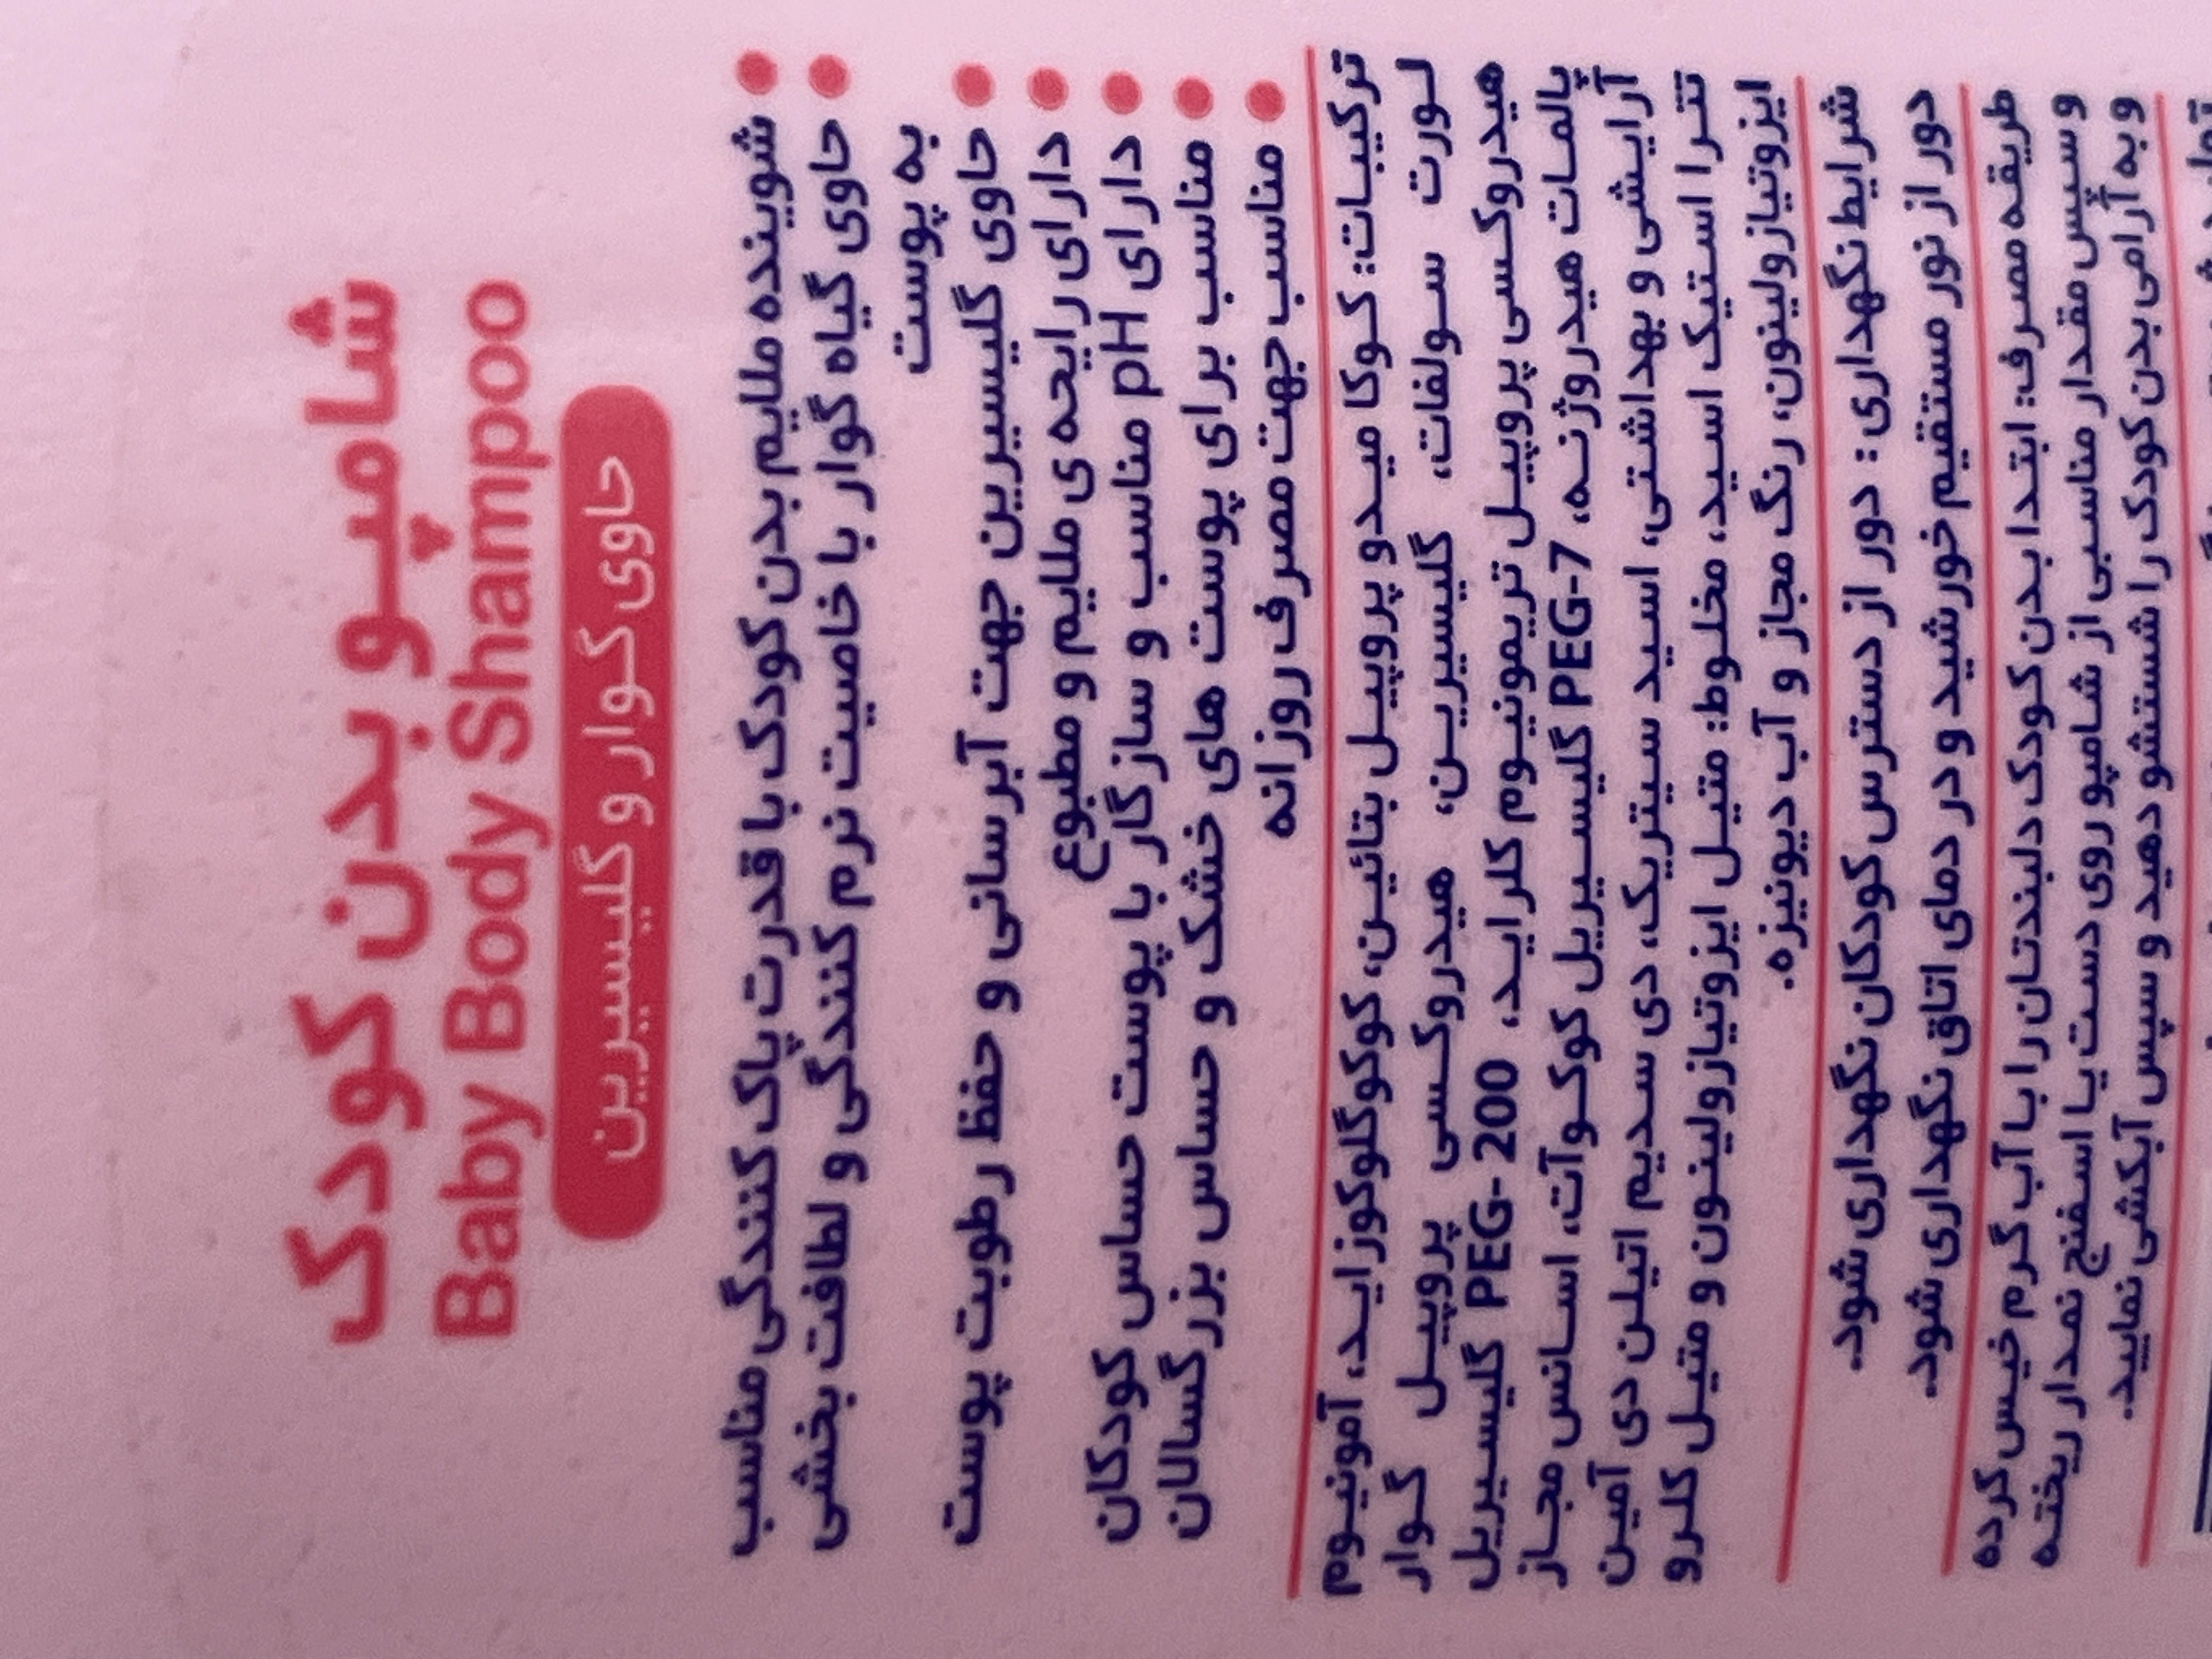 شامپو بدن کودک
Baby Body Shampoo
حاوی گوار و گلیسیرین
شوینده ملایم بدن کودک با قدرت پاک کنندگی مناسب
حاوی گیاه گوار با خاصیت نرم کنندگی و لطافت بخشی
به پوست
حاوی گلیسیرین جهت آبرسانی و حفظ رطوبت پوست
دارای رایحه ی ملایم و مطبوع
دارای pH مناسب و سازگار با پوست حساس کودکان
مناسب برای پوست های خشک و حساس بزرگسالان
مناسب جهت مصرف روزانه
ترکیبات: کوکا میدو پروپیل بتائین، کوکوگلوکوزاید، آمونیوم
لورت سولفات، گلیسیرین، هیدروکسی پروپیل گوار
هیدروکسی پروپیل تریمونیوم کلراید، PEG-200 گلیسیریل
پالمات هیدروژنه، PEG-7 گلیسیریل کوکوآت، اسانس مجاز
آرایشی و بهداشتی، اسید سیتریک، دی سدیم اتیلن دی آمین
تترا استیک اسید، مخلوط: متیل ایزوتیازولینون و متیل کلرو
ایزوتیازولینون، رنگ مجاز و آب دیونیزه.
شرایط نگهداری: دور از دسترس کودکان نگهداری شود.
دور از نور مستقیم خورشید و در دمای اتاق نگهداری شود.
طریقه مصرف: ابتدا بدن کودک دلبندتان را با آب گرم خیس کرده
و سپس مقدار مناسبی از شامپو روی دست یا اسفنج نمدار ریخته
و به آرامی بدن کودک را شستشو دهید و سپس آبکشی نمایید.